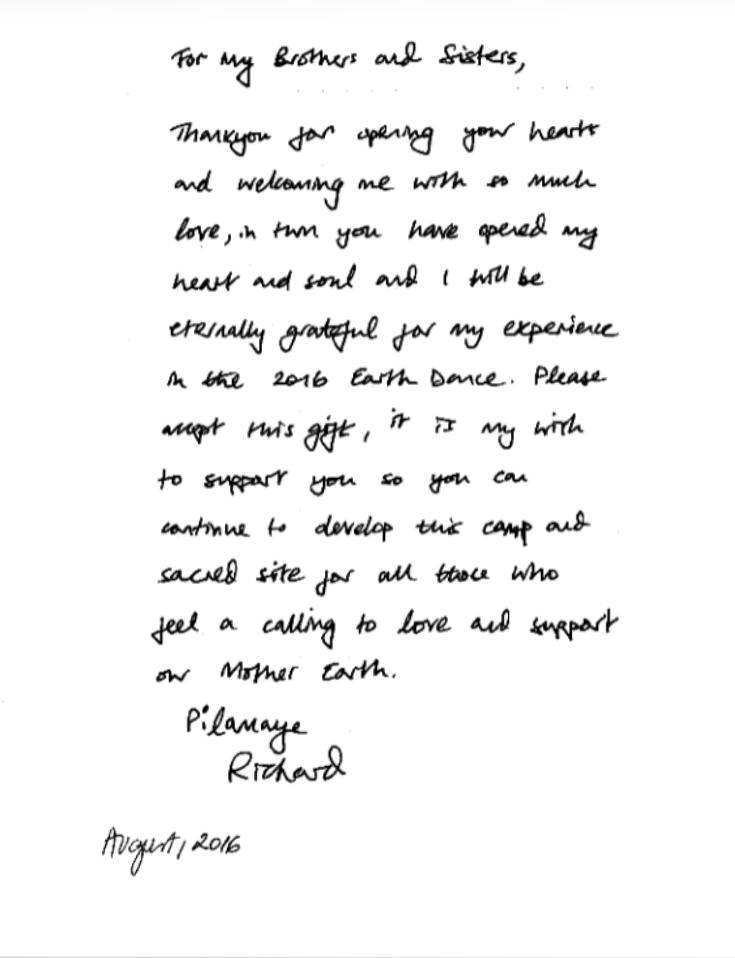 For my Brothers and Sisters,
Thankyou for opening your hearts
and welcoming me with so much
love, in turn you have opened my
heart and soul and I will be
eternally grateful for my experience
in the 2016 Earth Dance. Please
accept this gift, it is my wish
to support you so you can
continue to develop this camp and
sacred site for all those who
feel a calling to love and support
our Mother Earth.
Pilamaye
Richard
August, 2016